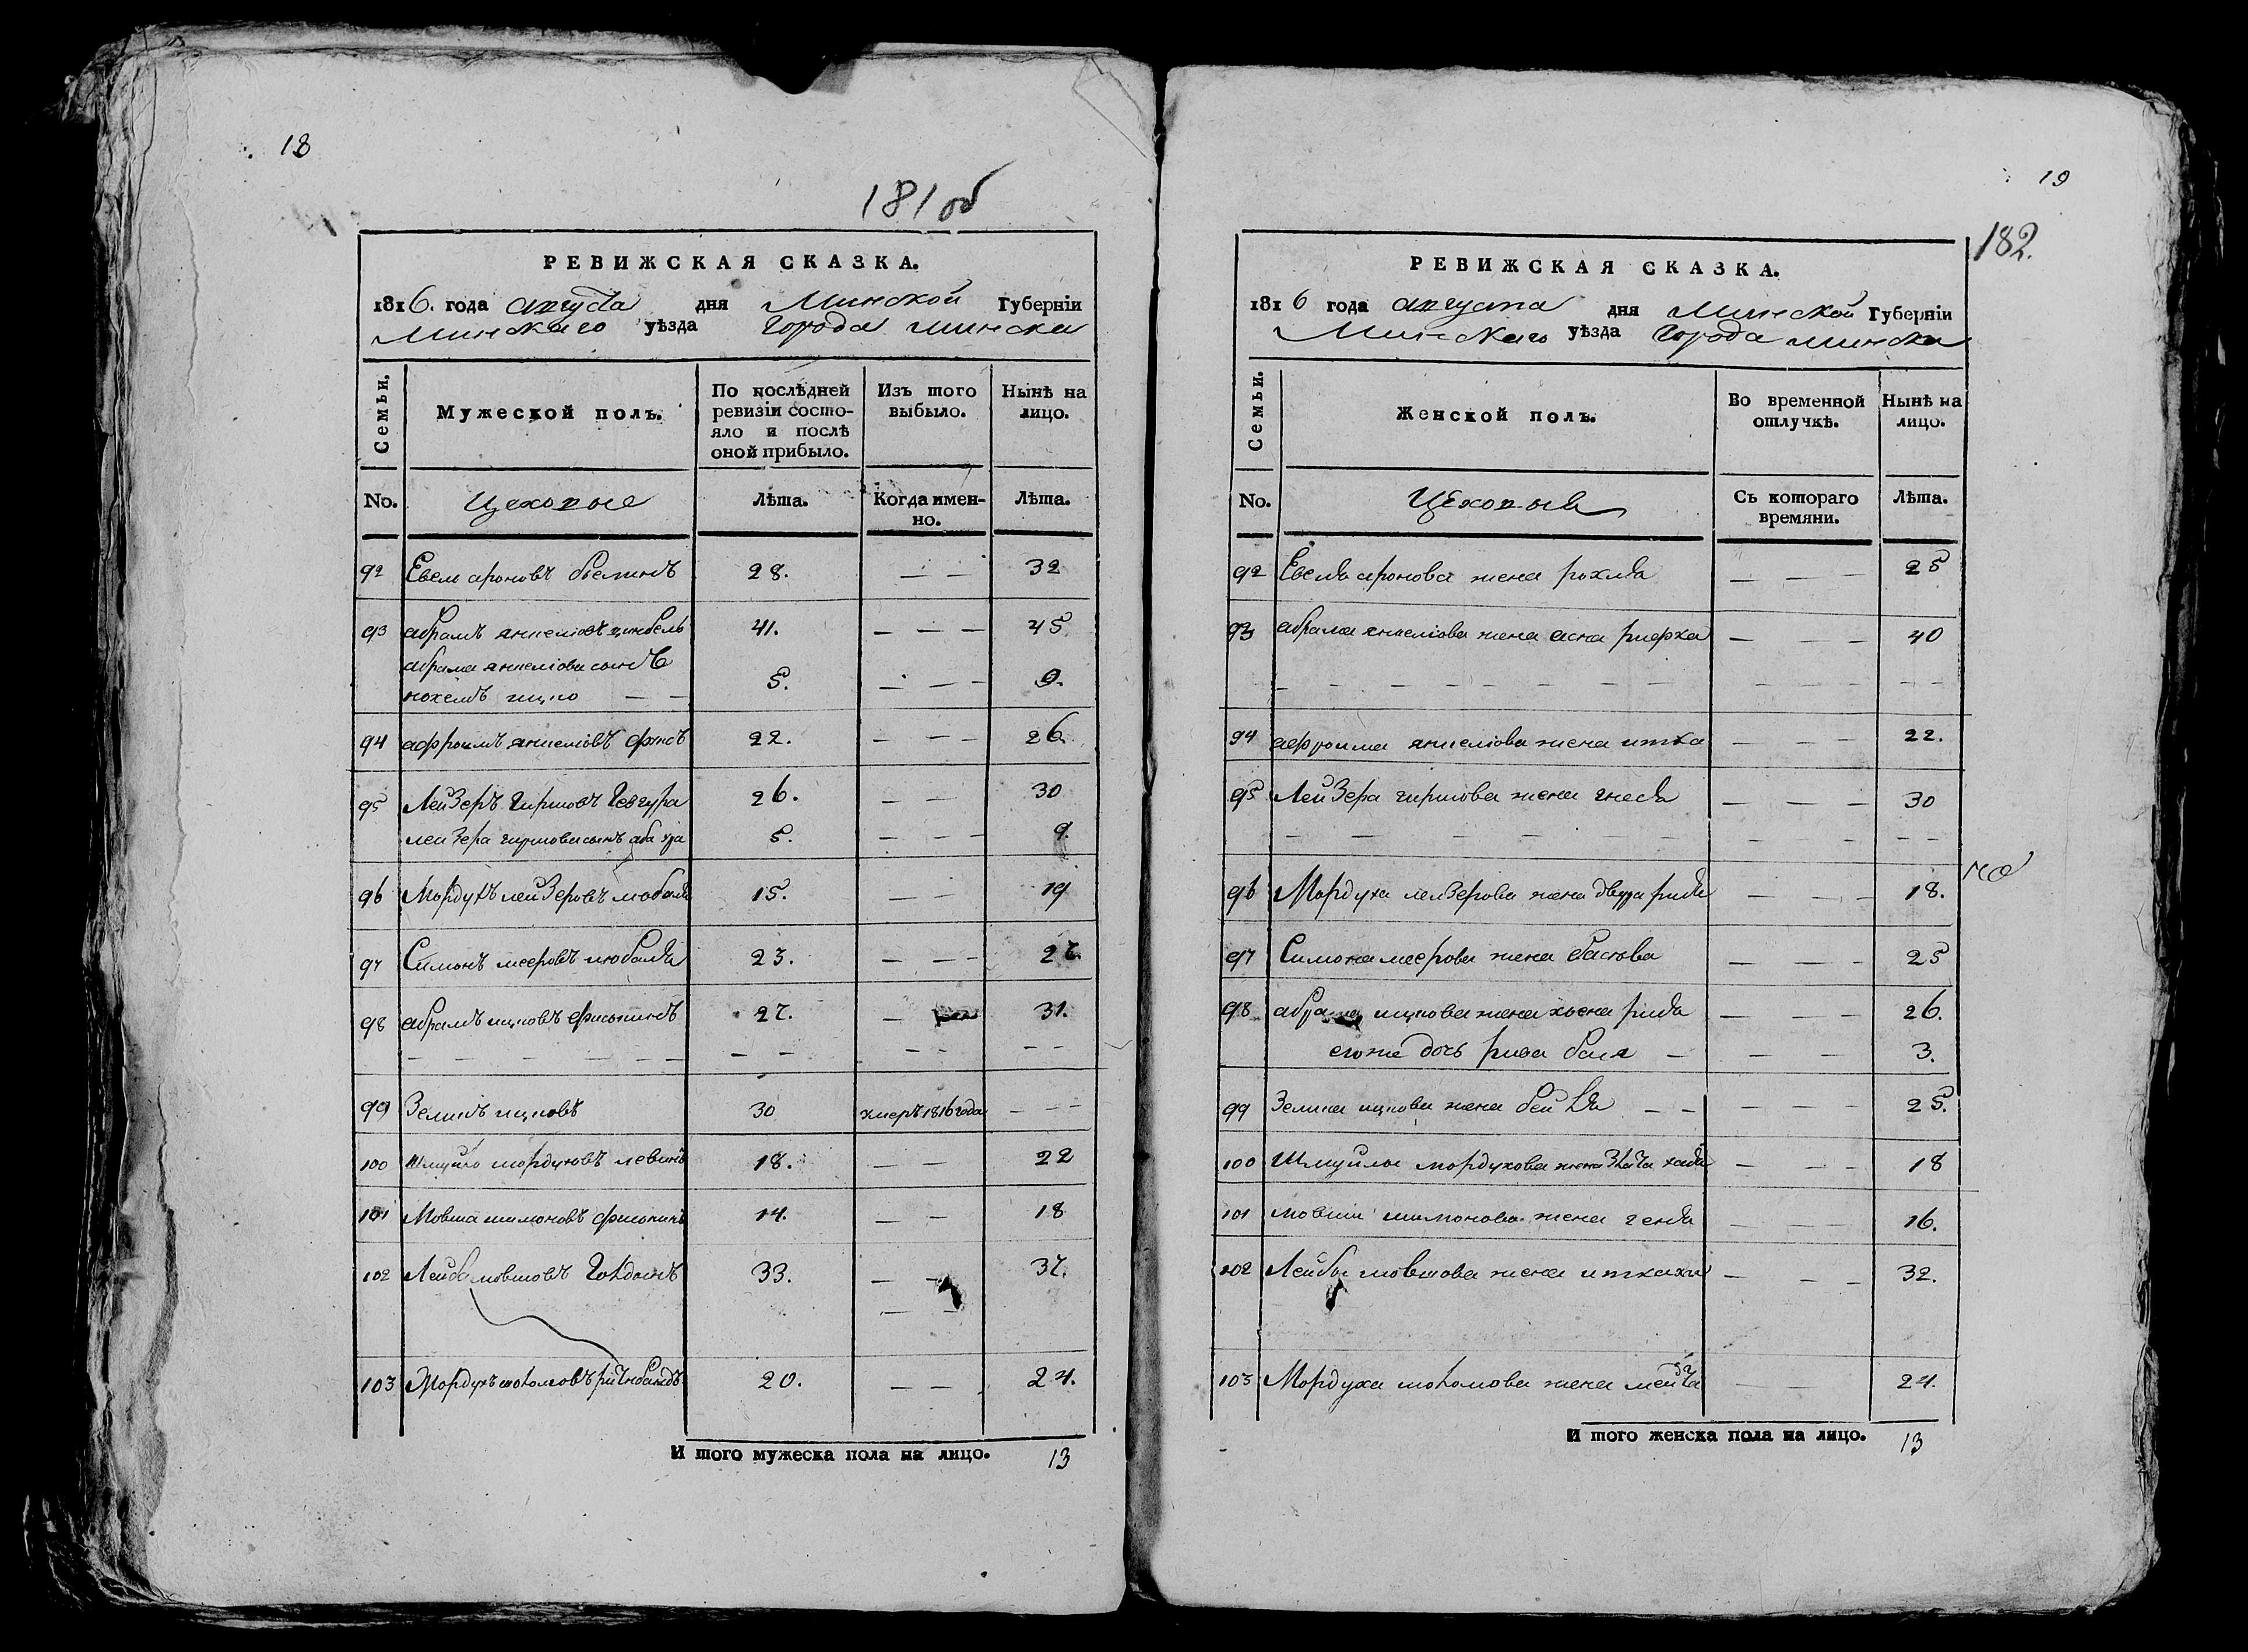 18
181 об
РЕВИЖСКАЯ СКАЗКА.
1816. года августа дня Минской Губерніи
Минскаго уѣзда Города Минска
Семьи. Мужеской полъ. По послѣдней ревизіи состояло и послѣ оной прибыло. Изъ того выбыло. Нынѣ на лицо.
No. Цеховые Лѣта. Когда именно. Лѣта.
92 Евель ароновъ 28. — — 32
93 абрамъ янкеліовъ 41. — — — 45
абрама янкеліова сынъ
нохемъ ицко — — 5. — — — 9.
94 афроимъ янкеліовъ 22. — — — 26.
95 Лейзеръ гиршовъ 26. — — 30
лейзера гиршова сынъ аба 5. — — — 9.
96 Мордухъ лейзеровъ 15. — — 19
97 Симонъ мееровъ 23. — — — 27.
98 абрамъ ицковъ фишкинъ 27. — 31.
— — — — — — — — — — — —
99 Зеликъ ицковъ 30 умеръ 1816 года — — —
100 Шмуйло мордуховъ левинъ 18. — — 22
101 Мовша шимоновъ фишкинъ 14. — — 18
102 Лейба мовшовъ 33. — — 37.
— —
103 Мордухъ шоломовъ 20. — — 24.
И того мужеска пола на лицо. 13
19
182.
РЕВИЖСКАЯ СКАЗКА.
1816 года августа дня Минской Губерніи
Минскаго уѣзда Города Минска
Семьи. Женской полъ. Во временной отлучкѣ. Нынѣ на лицо.
No. Цеховыя Съ котораго времяни. Лѣта.
92 Евеля аронова жена рохля — — — 25
93 абрама янкеліова жена — — — 40
— — — — — — — — — — — — —
94 афроима янкеліова жена итка — — — 22.
95 Лейзера гиршова жена гнеся — — — 30
— — — — — — — — — —
96 Мордуха лейзерова жена двера — — — 18.
97 Симона меерова жена — — — 25
98 абрама ицкова жена — — — 26.
его же дочь рива бася — — — 3.
99 Зелика ицкова жена бейля — — — — — 25.
100 Шмуйлы мордухова жена — — — 18
101 мовши шимонова жена геня — — — 16.
102 Лейбы мовшова жена — — — 32.
103 Мордуха шоломова жена — — 24.
И того женска пола на лицо. 13